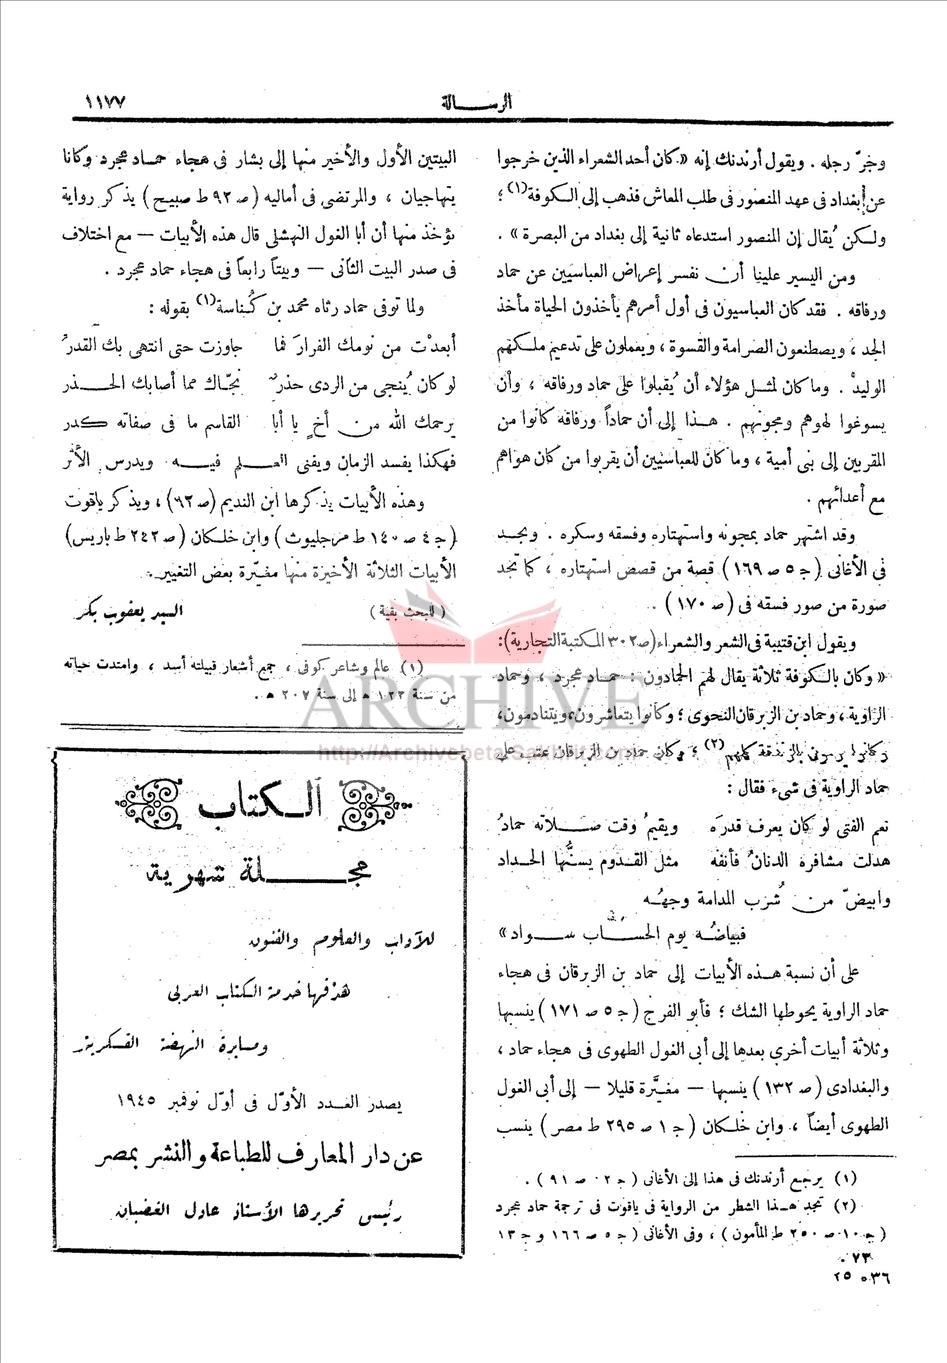 ١١٧٧
الرسالة
وجرّ رجله . ويقول أرندنك إنه « كان أحد الشعراء الذين خرجوا
عن بغداد فى عهد المنصور فى طلب المعاش فذهب إلى الكوفة(١) ؛
ولكن يُقال إن المنصور استدعاه ثانية إلى بغداد من البصرة » .
ومن اليسير علينا أن نفسر إعراض العباسيين عن حماد
ورفاقه . فقد كان العباسيون فى أول أمرهم يأخذون الحياة مأخذ
الجد ، ويصطنعون الصرامة والقسوة ، ويعملون على تدعيم ملكهم
الوليد . وما كان لمثل هؤلاء أن يُقبلوا على حماد ورفاقه ، وأن
يسوغوا لهوهم ومجونهم . هذا إلى أن حماداً ورفاقه كانوا من
المقربين إلى بنى أمية ، وما كان للعباسيين أن يقربوا من كان هواهم
مع أعدائهم .
وقد اشتهر حماد بمجونه واستهتاره وفسقه وسكره . ونجد
فى الأغانى ( ج ٥ ص ١٦٩ ) قصة من قصص استهتاره ، كما نجد
صورة من صور فسقه فى ( ص ١٧٠ ) .
ويقول ابن قتيبة فى الشعر والشعراء (ص ٣٠٢ المكتبة التجارية):
« وكان بالكوفة ثلاثة يقال لهم الحمادون : حماد عجرد ، وحماد
الراوية ، وحماد بن الزبرقان النحوى ؛ وكانوا يتعاشرون، ويتنادمون،
وكانوا يرمون بالزندقة كلهم(٢) ؛ وكان حماد بن الزبرقان عتب على
حماد الراوية فى شىء فقال :
نعم الفتى لو كان يعرف قدرَه ويقيمُ وقت صلاته حمادُ
هدلت مشافره الدنانُ فأنفه مثل القدوم يسنُّها الحداد
وابيضّ من شُرب المدامة وجهُه
فبياضُه يوم الحساب سواد »
على أن نسبة هذه الأبيات إلى حماد بن الزبرقان فى هجاء
حماد الراوية يحوطها الشك ؛ فأبو الفرج ( ج ٥ ص ١٧١ ) ينسبها
وثلاثة أبيات أخرى بعدها إلى أبى الغول الطهوى فى هجاء حماد ،
والبغدادى ( ص ١٣٢ ) ينسبها — مغيَّرة قليلا — إلى أبى الغول
الطهوى أيضاً ، وابن خلكان ( ج ١ ص ٢٩٥ ط مصر ) ينسب
(١) يرجع أرندنك فى هذا إلى الأغانى ( ج ٠٢ ص ٩١ ) .
(٢) تجد هذا الشطر من الرواية فى ياقوت فى ترجمة حماد عجرد
( ج ١٠ ص ٢٥٠ ط المأمون ) ، وفى الأغانى ( ج ٥ ص ١٦٦ و ج ١٣
ص ٧٣ .
البيتين الأول والأخير منها إلى بشار فى هجاء حماد عجرد وكانا
يتهاجيان ، والمرتضى فى أماليه ( ص ٩٢ ط صبيح ) يذكر رواية
نؤخذ منها أن أبا الغول النهشلى قال هذه الأبيات — مع اختلاف
فى صدر البيت الثانى — وبيتاً رابعاً فى هجاء حماد عجرد .
ولما توفى حماد رثاه محمد بن كُناسة(١) بقوله :
أبعدْت من نومك الفرارَ فما جاوزت حتى انتهى بك القدرُ
لو كان يُنجى من الردى حذرٌ نجّاك مما أصابك الحذر
يرحمك الله من أخٍ يا أبا القاسم ما فى صفائه كدر
فهكذا يفسد الزمان ويفنى العلم فيه ويدرس الأثر
وهذه الأبيات يذكرها ابن النديم (ص ٩٢) ، ويذكر ياقوت
( ج ٤ ص ١٤٠ ط مرجليوث ) وابن خلكان ( ص ٢٤٢ ط باريس )
الأبيات الثلاثة الأخيرة منها مغيّرة بعض التغيير .
( للبحث بقية ) السيد يعقوب بكر
(١) عالم وشاعر كوفى ، جمع أشعار قبيلته أسد ، وامتدت حياته
من سنة ١٢٣ ه إلى سنة ٢٠٧ ه .
الكتاب
مجلة شهرية
للآداب والعلوم والفنون
هدفها خدمة الكتاب العربى
ومسايرة النهضة الفكرية
يصدر العدد الأوّل فى أوّل نوفمبر ١٩٤٥
عن دار المعارف للطباعة والنشر بمصر
رئيس تحريرها الأستاذ عادل الغضبان
ARCHIVE
http://Archivebeta.Sakhrit.com